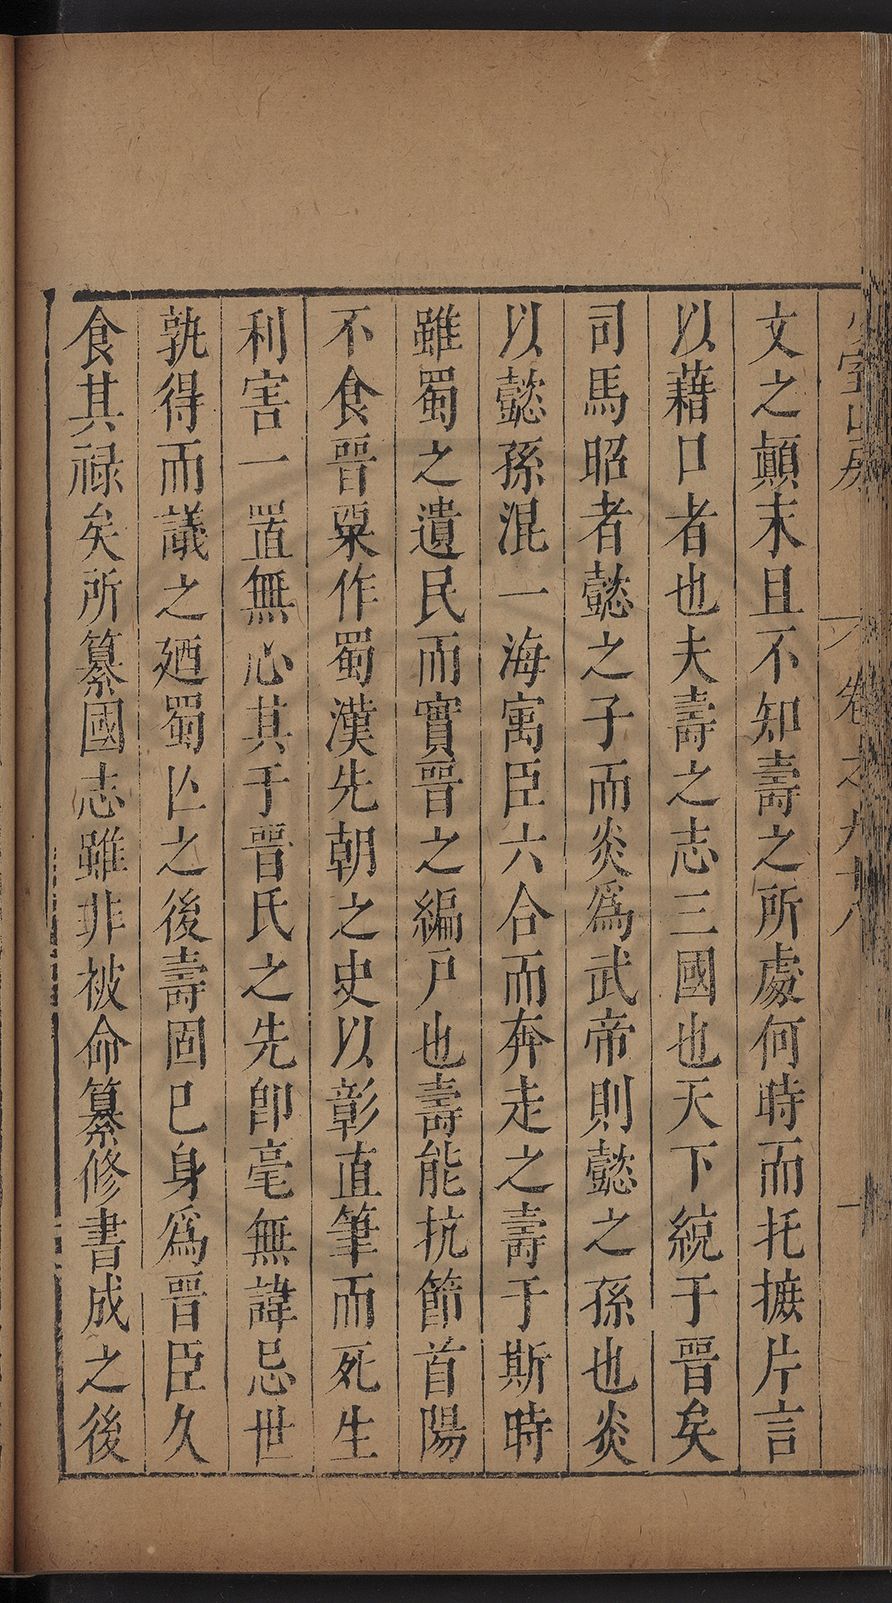 室山房 卷之九十八 一
文之顛末且不知壽之所處何時而托摭片言
以藉口者也夫壽之志三國也天下統于晉矣
司馬昭者懿之子而炎爲武帝則懿之孫也炎
以懿孫混一海寓臣六合而奔走之壽于斯時
雖蜀之遺民而實晉之編戸也壽能抗節首陽
不食晉粟作蜀漢先朝之史以彰直筆而死生
利害一置無心其于晉氏之先卽毫無諱忌世
孰得而議之廼蜀亾之後壽固巳身爲晉臣久
食其祿矣所纂國志雖非被命纂修書成之後